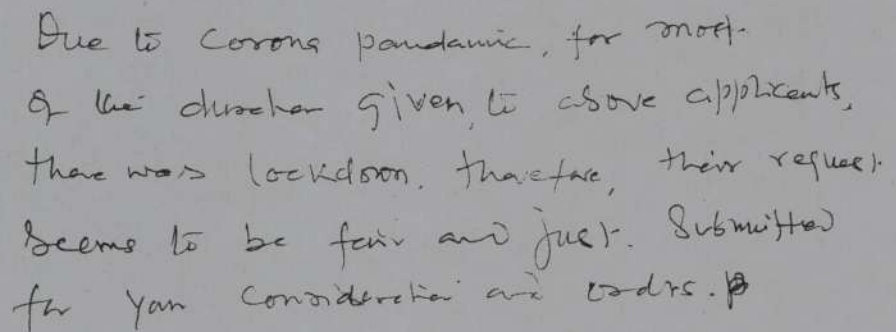 Due to Corona pandamic, for most
of the duration given, to above applicants,
there was lockdown. therefore, their request
seems to be fair and just. Submitted
for your consideration and orders.